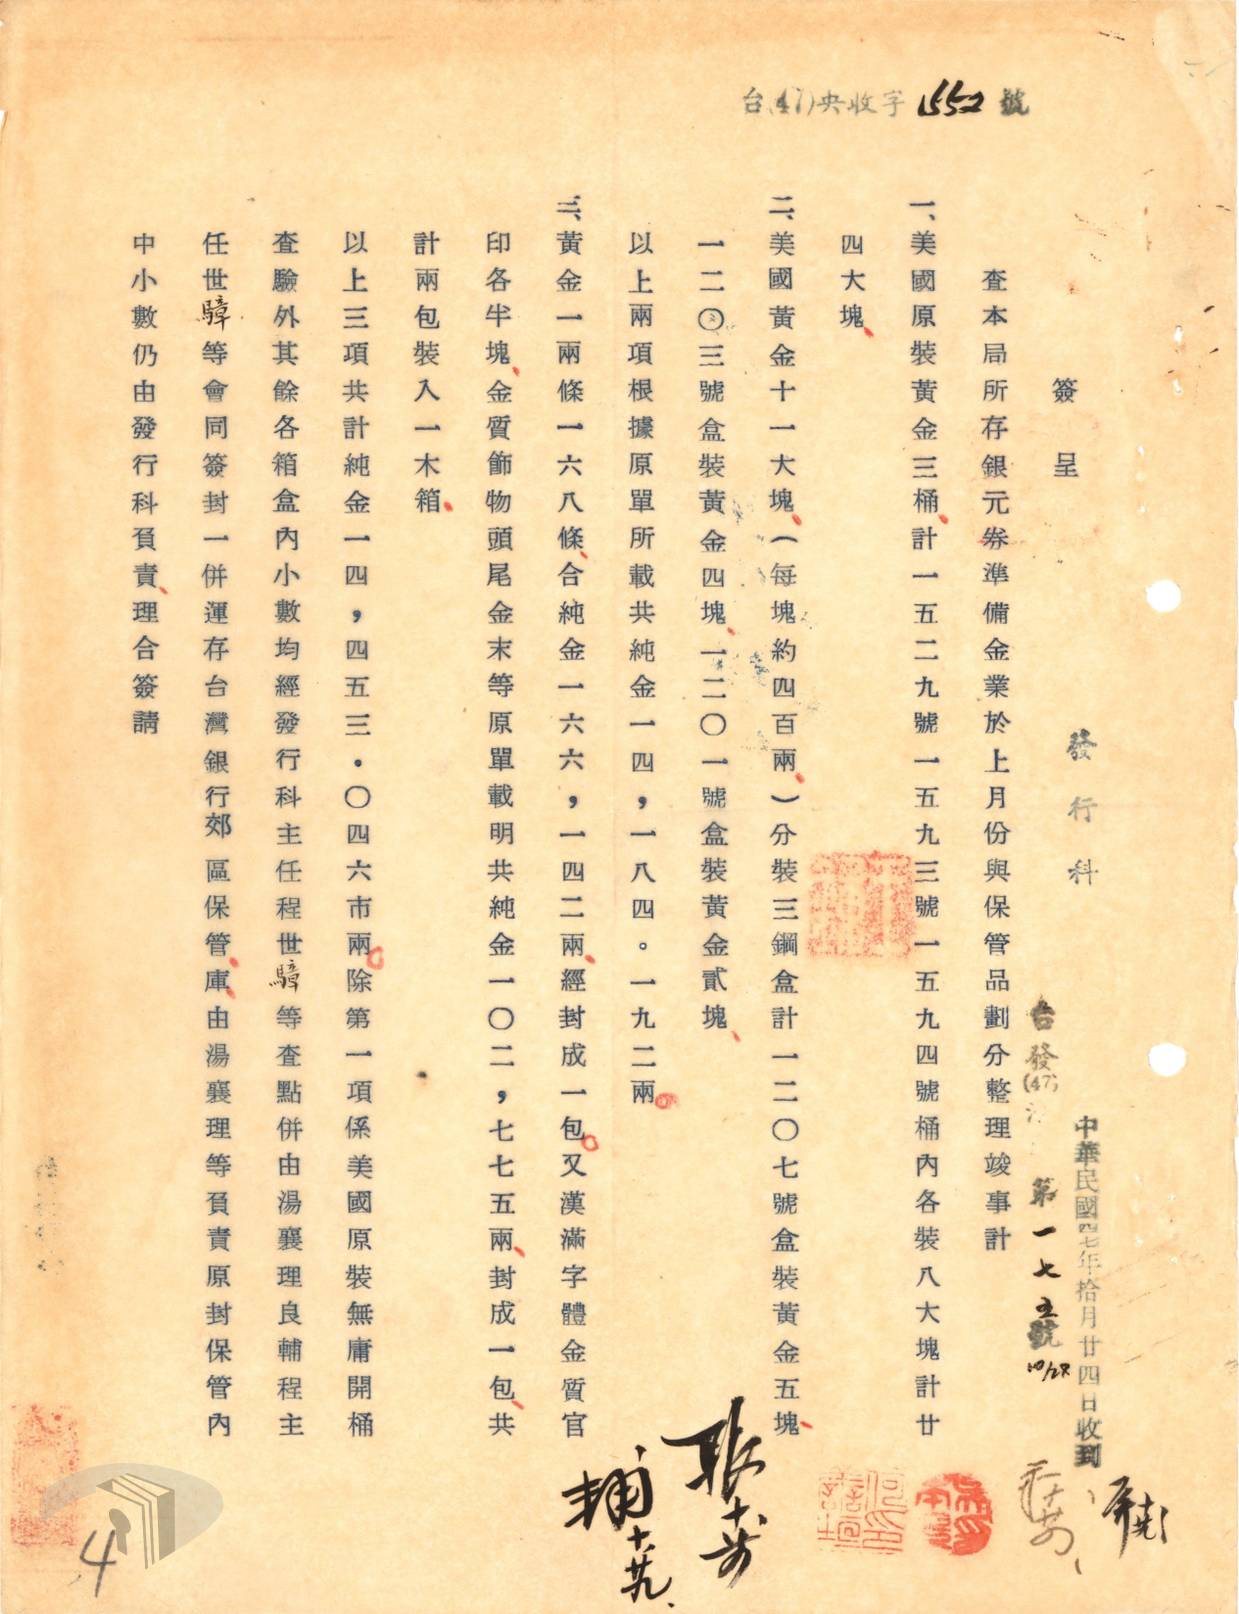 台(47)央收字 1552 號
簽呈
發行科
中華民國四七年拾月廿四日收到
台發(47) 第一七五號
10/28
查本局所存銀元券準備金業於上月份與保管品劃分整理竣事計
一、美國原裝黃金三桶計一五二九號一五九三號一五九四號桶內各裝八大塊計廿
四大塊
二、美國黃金十一大塊(每塊約四百兩)分裝三鋼盒計一二〇七號盒裝黃金五塊
一二〇三號盒裝黃金四塊一二〇一號盒裝黃金貳塊
以上兩項根據原單所載共純金一四,一八四。一九二兩
三、黃金一兩條一六八條合純金一六六,一四二兩經封成一包又漢滿字體金質官
印各半塊金質飾物頭尾金末等原單載明共純金一〇二,七七五兩封成一包共
計兩包裝入一木箱
以上三項共計純金一四,四五三.〇四六市兩除第一項係美國原裝無庸開桶
查驗外其餘各箱盒內小數均經發行科主任程世騿等查點併由湯襄理良輔程主
任世騿等會同簽封一併運存台灣銀行郊區保管庫由湯襄理等負責原封保管內
中小數仍由發行科負責理合簽請
4